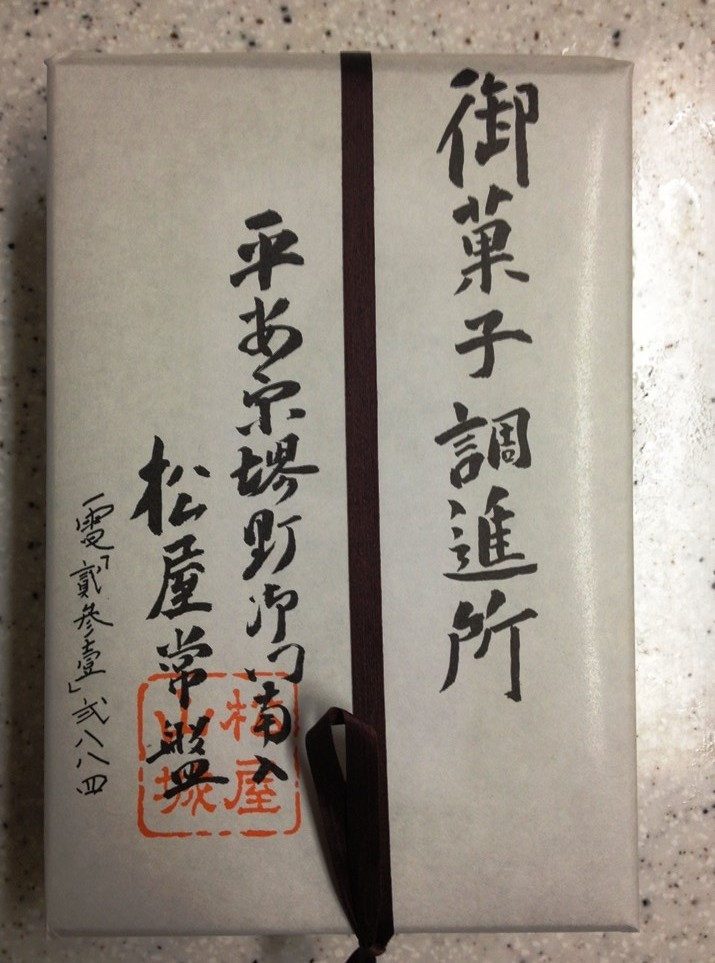 御菓子調進所
平安京堺町御門南入
松屋常盤
電「貳参壹」弐八八四
松屋
山城